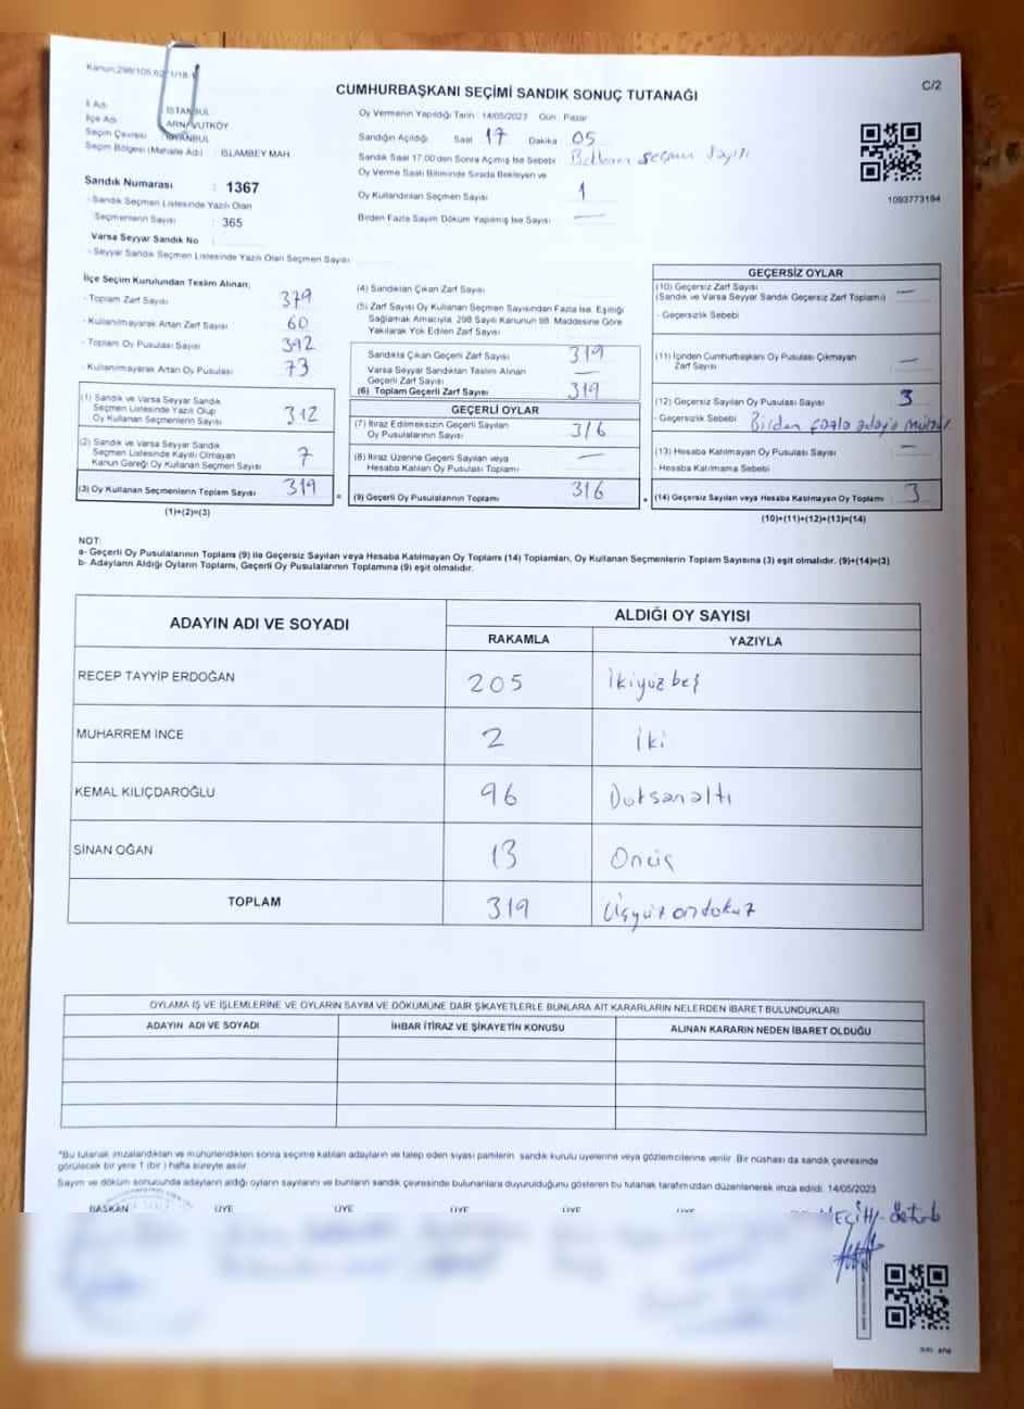 Kanun:298/105,62
CUMHURBAŞKANI SEÇİMİ SANDIK SONUÇ TUTANAĞI
C/2
İl Adı : İSTANBUL
İlçe Adı : ARNAVUTKÖY
Seçim Çevresi : İSTANBUL
Seçim Bölgesi (Mahalle Adı) : İSLAMBEY MAH
Sandık Numarası : 1367
- Sandık Seçmen Listesinde Yazılı Olan
Seçmenlerin Sayısı : 365
Varsa Seyyar Sandık No :
- Seyyar Sandık Seçmen Listesinde Yazılı Olan Seçmen Sayısı :
Oy Vermenin Yapıldığı Tarih : 14/05/2023 Gün : Pazar
Sandığın Açıldığı Saat 17 Dakika 05
Sandık Saat 17:00'den Sonra Açılmış İse Sebebi : seçmen sayısı
Oy Verme Saati Bitiminde Sırada Bekleyen ve
Oy Kullandırılan Seçmen Sayısı 1
Birden Fazla Sayım Döküm Yapılmış İse Sayısı : —
1093773184
İlçe Seçim Kurulundan Teslim Alınan;
- Toplam Zarf Sayısı 379
- Kullanılmayarak Artan Zarf Sayısı 60
- Toplam Oy Pusulası Sayısı 392
- Kullanılmayarak Artan Oy Pusulası 73
(1) Sandık ve Varsa Seyyar Sandık
Seçmen Listesinde Yazılı Olup
Oy Kullanan Seçmenlerin Sayısı 312
(2) Sandık ve Varsa Seyyar Sandık
Seçmen Listesinde Kayıtlı Olmayan
Kanun Gereği Oy Kullanan Seçmen Sayısı 7
(3) Oy Kullanan Seçmenlerin Toplam Sayısı 319
(1)+(2)=(3)
=
(4) Sandıktan Çıkan Zarf Sayısı
(5) Zarf Sayısı Oy Kullanan Seçmen Sayısından Fazla İse, Eşitliği
Sağlamak Amacıyla, 298 Sayılı Kanunun 98. Maddesine Göre
Yakılarak Yok Edilen Zarf Sayısı
Sandıkta Çıkan Geçerli Zarf Sayısı 319
Varsa Seyyar Sandıktan Teslim Alınan
Geçerli Zarf Sayısı —
(6) Toplam Geçerli Zarf Sayısı 319
GEÇERLİ OYLAR
(7) İtiraz Edilmeksizin Geçerli Sayılan
Oy Pusulalarının Sayısı 316
(8) İtiraz Üzerine Geçerli Sayılan veya
Hesaba Katılan Oy Pusulası Toplamı —
(9) Geçerli Oy Pusulalarının Toplamı 316
+
GEÇERSİZ OYLAR
(10) Geçersiz Zarf Sayısı —
(Sandık ve Varsa Seyyar Sandık Geçersiz Zarf Toplamı)
- Geçersizlik Sebebi
(11) İçinden Cumhurbaşkanı Oy Pusulası Çıkmayan
Zarf Sayısı —
(12) Geçersiz Sayılan Oy Pusulası Sayısı 3
- Geçersizlik Sebebi Birden fazla adaya mühür
(13) Hesaba Katılmayan Oy Pusulası Sayısı —
- Hesaba Katılmama Sebebi
(14) Geçersiz Sayılan veya Hesaba Katılmayan Oy Toplamı 3
(10)+(11)+(12)+(13)=(14)
NOT:
a- Geçerli Oy Pusulalarının Toplamı (9) ile Geçersiz Sayılan veya Hesaba Katılmayan Oy Toplamı (14) Toplamları, Oy Kullanan Seçmenlerin Toplam Sayısına (3) eşit olmalıdır. (9)+(14)=(3)
b- Adayların Aldığı Oyların Toplamı, Geçerli Oy Pusulalarının Toplamına (9) eşit olmalıdır.
ADAYIN ADI VE SOYADI ALDIĞI OY SAYISI
RAKAMLA YAZIYLA
RECEP TAYYİP ERDOĞAN 205 İkiyüz beş
MUHARREM İNCE 2 İki
KEMAL KILIÇDAROĞLU 96 Doksanaltı
SİNAN OĞAN 13 Onüç
TOPLAM 319 Üçyüz ondokuz
OYLAMA İŞ VE İŞLEMLERİNE VE OYLARIN SAYIM VE DÖKÜMÜNE DAİR ŞİKAYETLERLE BUNLARA AİT KARARLARIN NELERDEN İBARET BULUNDUKLARI
ADAYIN ADI VE SOYADI İHBAR İTİRAZ VE ŞİKAYETİN KONUSU ALINAN KARARIN NEDEN İBARET OLDUĞU
*Bu tutanak imzalandıktan ve mühürlendikten sonra seçime katılan adayların ve talep eden siyasi partilerin sandık kurulu üyelerine veya gözlemcilerine verilir. Bir nüshası da sandık çevresinde
görülecek bir yere 1 (bir) hafta süreyle asılır.
Sayım ve döküm sonucunda adayların aldığı oyların sayılarını ve bunların sandık çevresinde bulunanlara duyurulduğunu gösteren bu tutanak tarafımızdan düzenlenerek imza edildi. 14/05/2023
BAŞKAN ÜYE ÜYE ÜYE ÜYE ÜYE